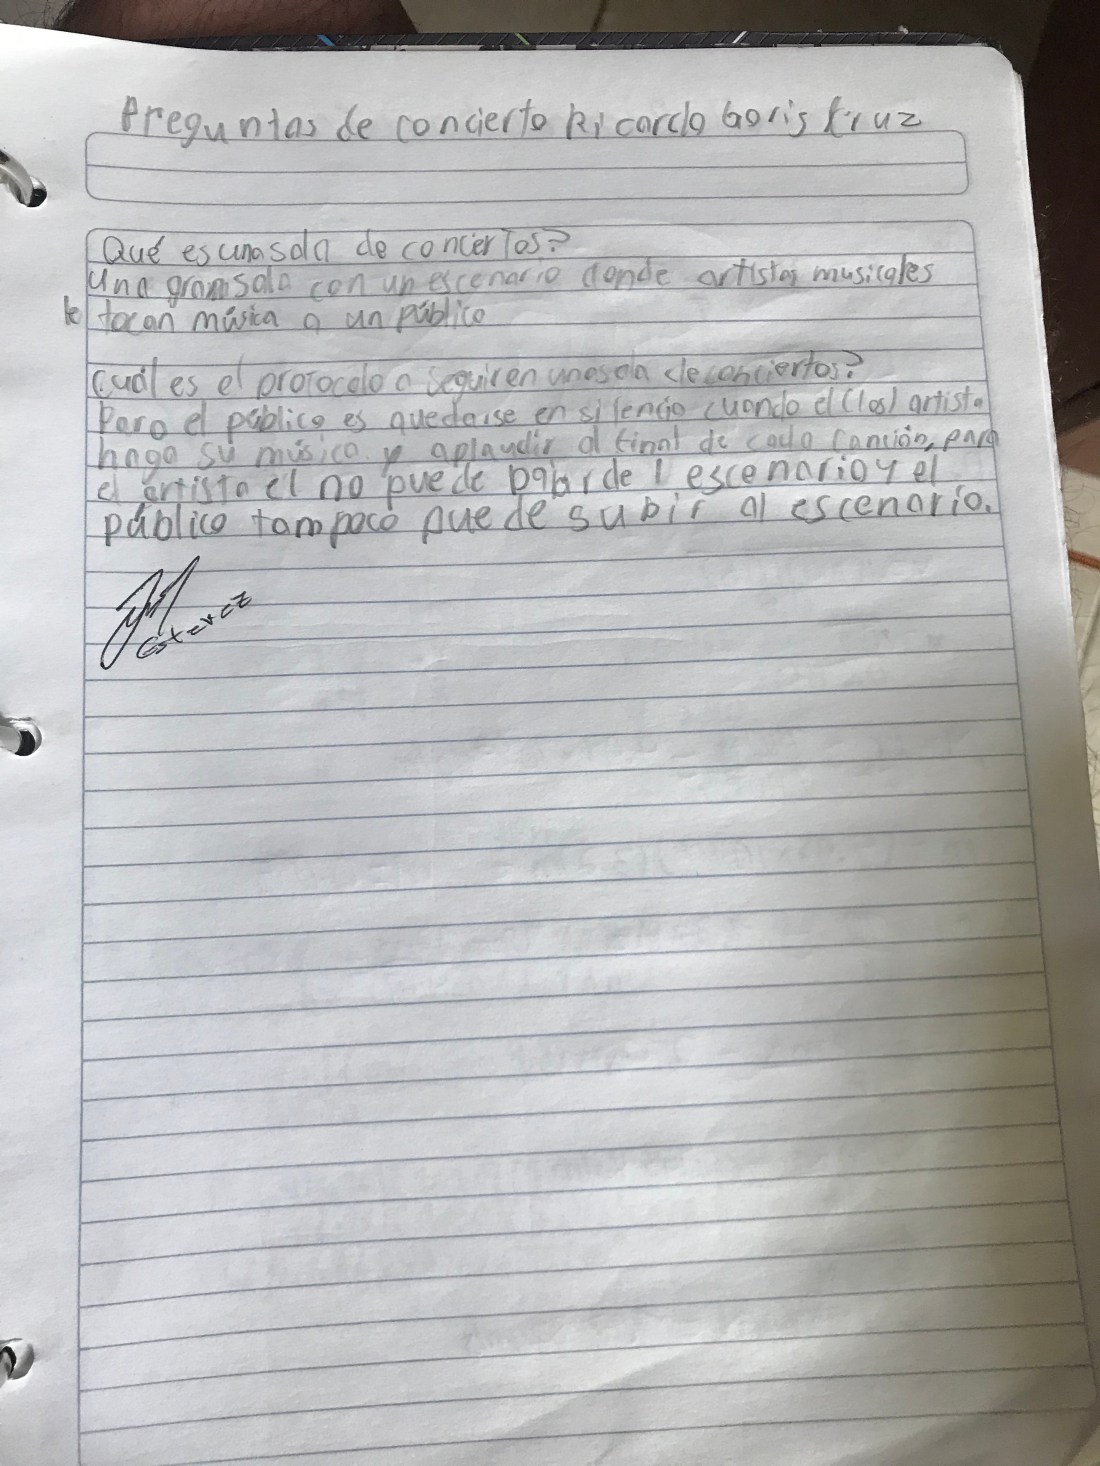 Preguntas de concierto Ricardo Goris Kruz
Qué es una sala de conciertos?
Una gran sala con un escenario donde artistas musicales
le tocan música a un público
Cuál es el protocolo a seguir en una sala de conciertos?
Para el público es quedarse en silencio cuando el (los) artista
haga su música y aplaudir al final de cada canción, para
el artista el no puede bajar del escenario y el
público tampoco puede subir al escenario.
Estevez